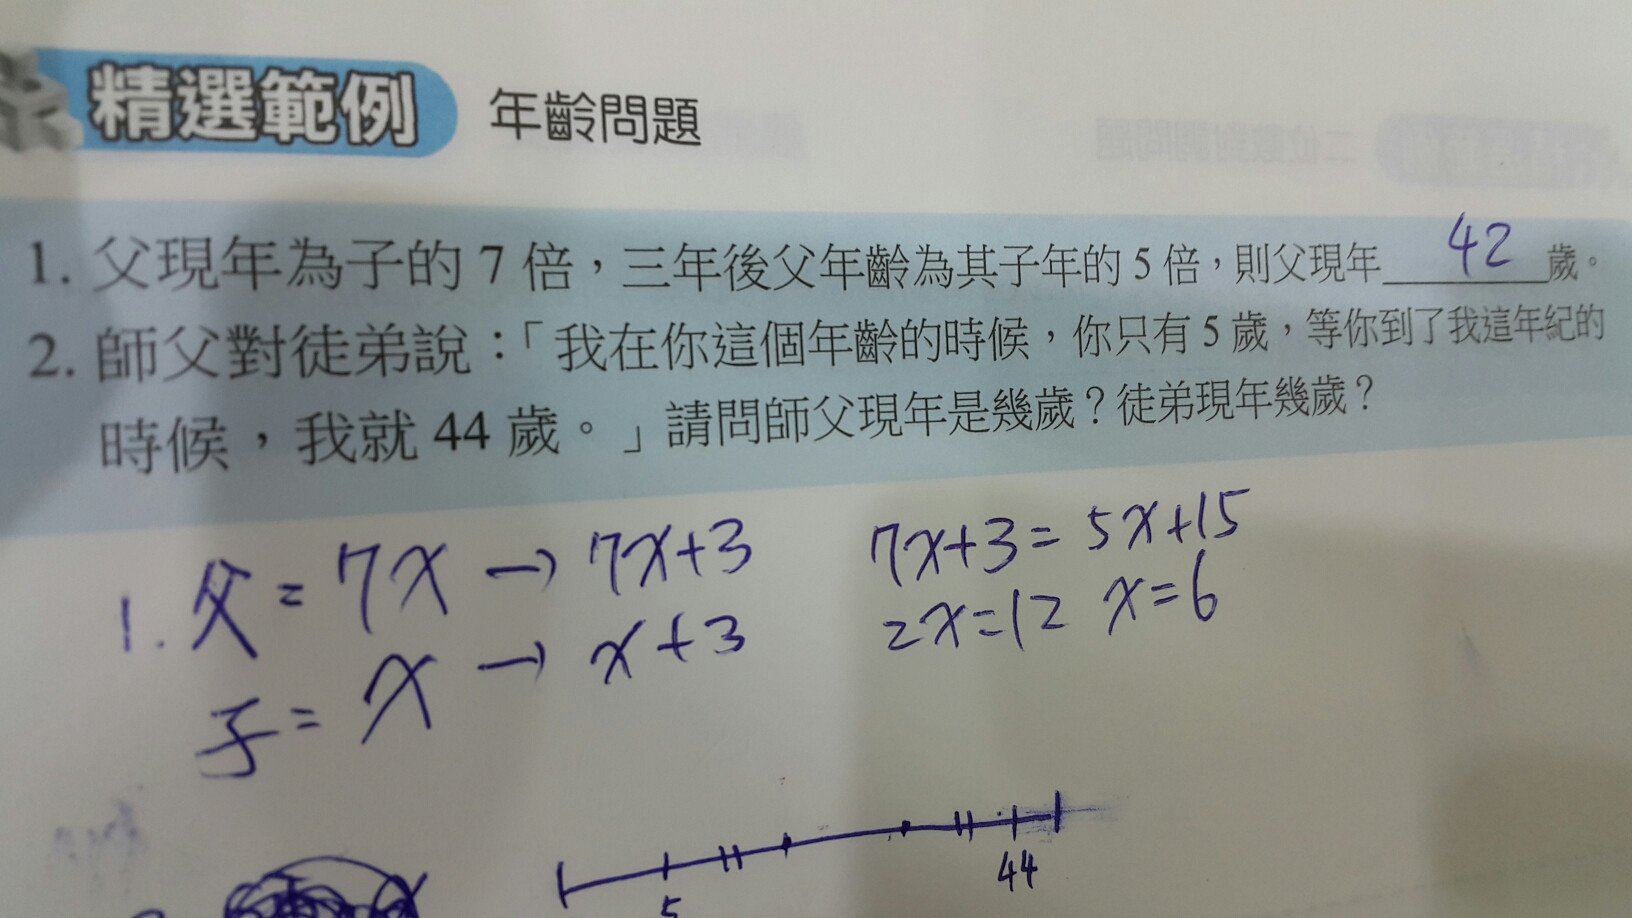 精選範例 年齡問題
1. 父現年為子的 7 倍，三年後父年齡為其子年的 5 倍，則父現年 42 歲。
2. 師父對徒弟說：「我在你這個年齡的時候，你只有 5 歲，等你到了我這年紀的
時候，我就 44 歲。」請問師父現年是幾歲？徒弟現年幾歲？
1. 父 = 7x → 7x+3 7x+3 = 5x+15
子 = x → x+3 2x=12 x=6
5 44